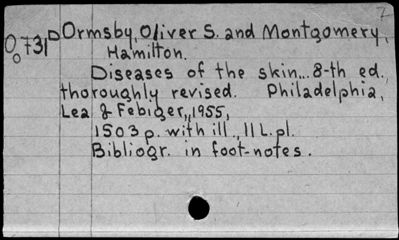 Ormsby, Oliver S. and Montgomery,
O731D
Hamilton.
Diseases of the skin... 8-th ed.,
thoroughly revised. Philadelphia,
Lea & Febiger, 1955,
1503 p. with ill., 11 L. pl.
Bibliogr. in foot-notes.